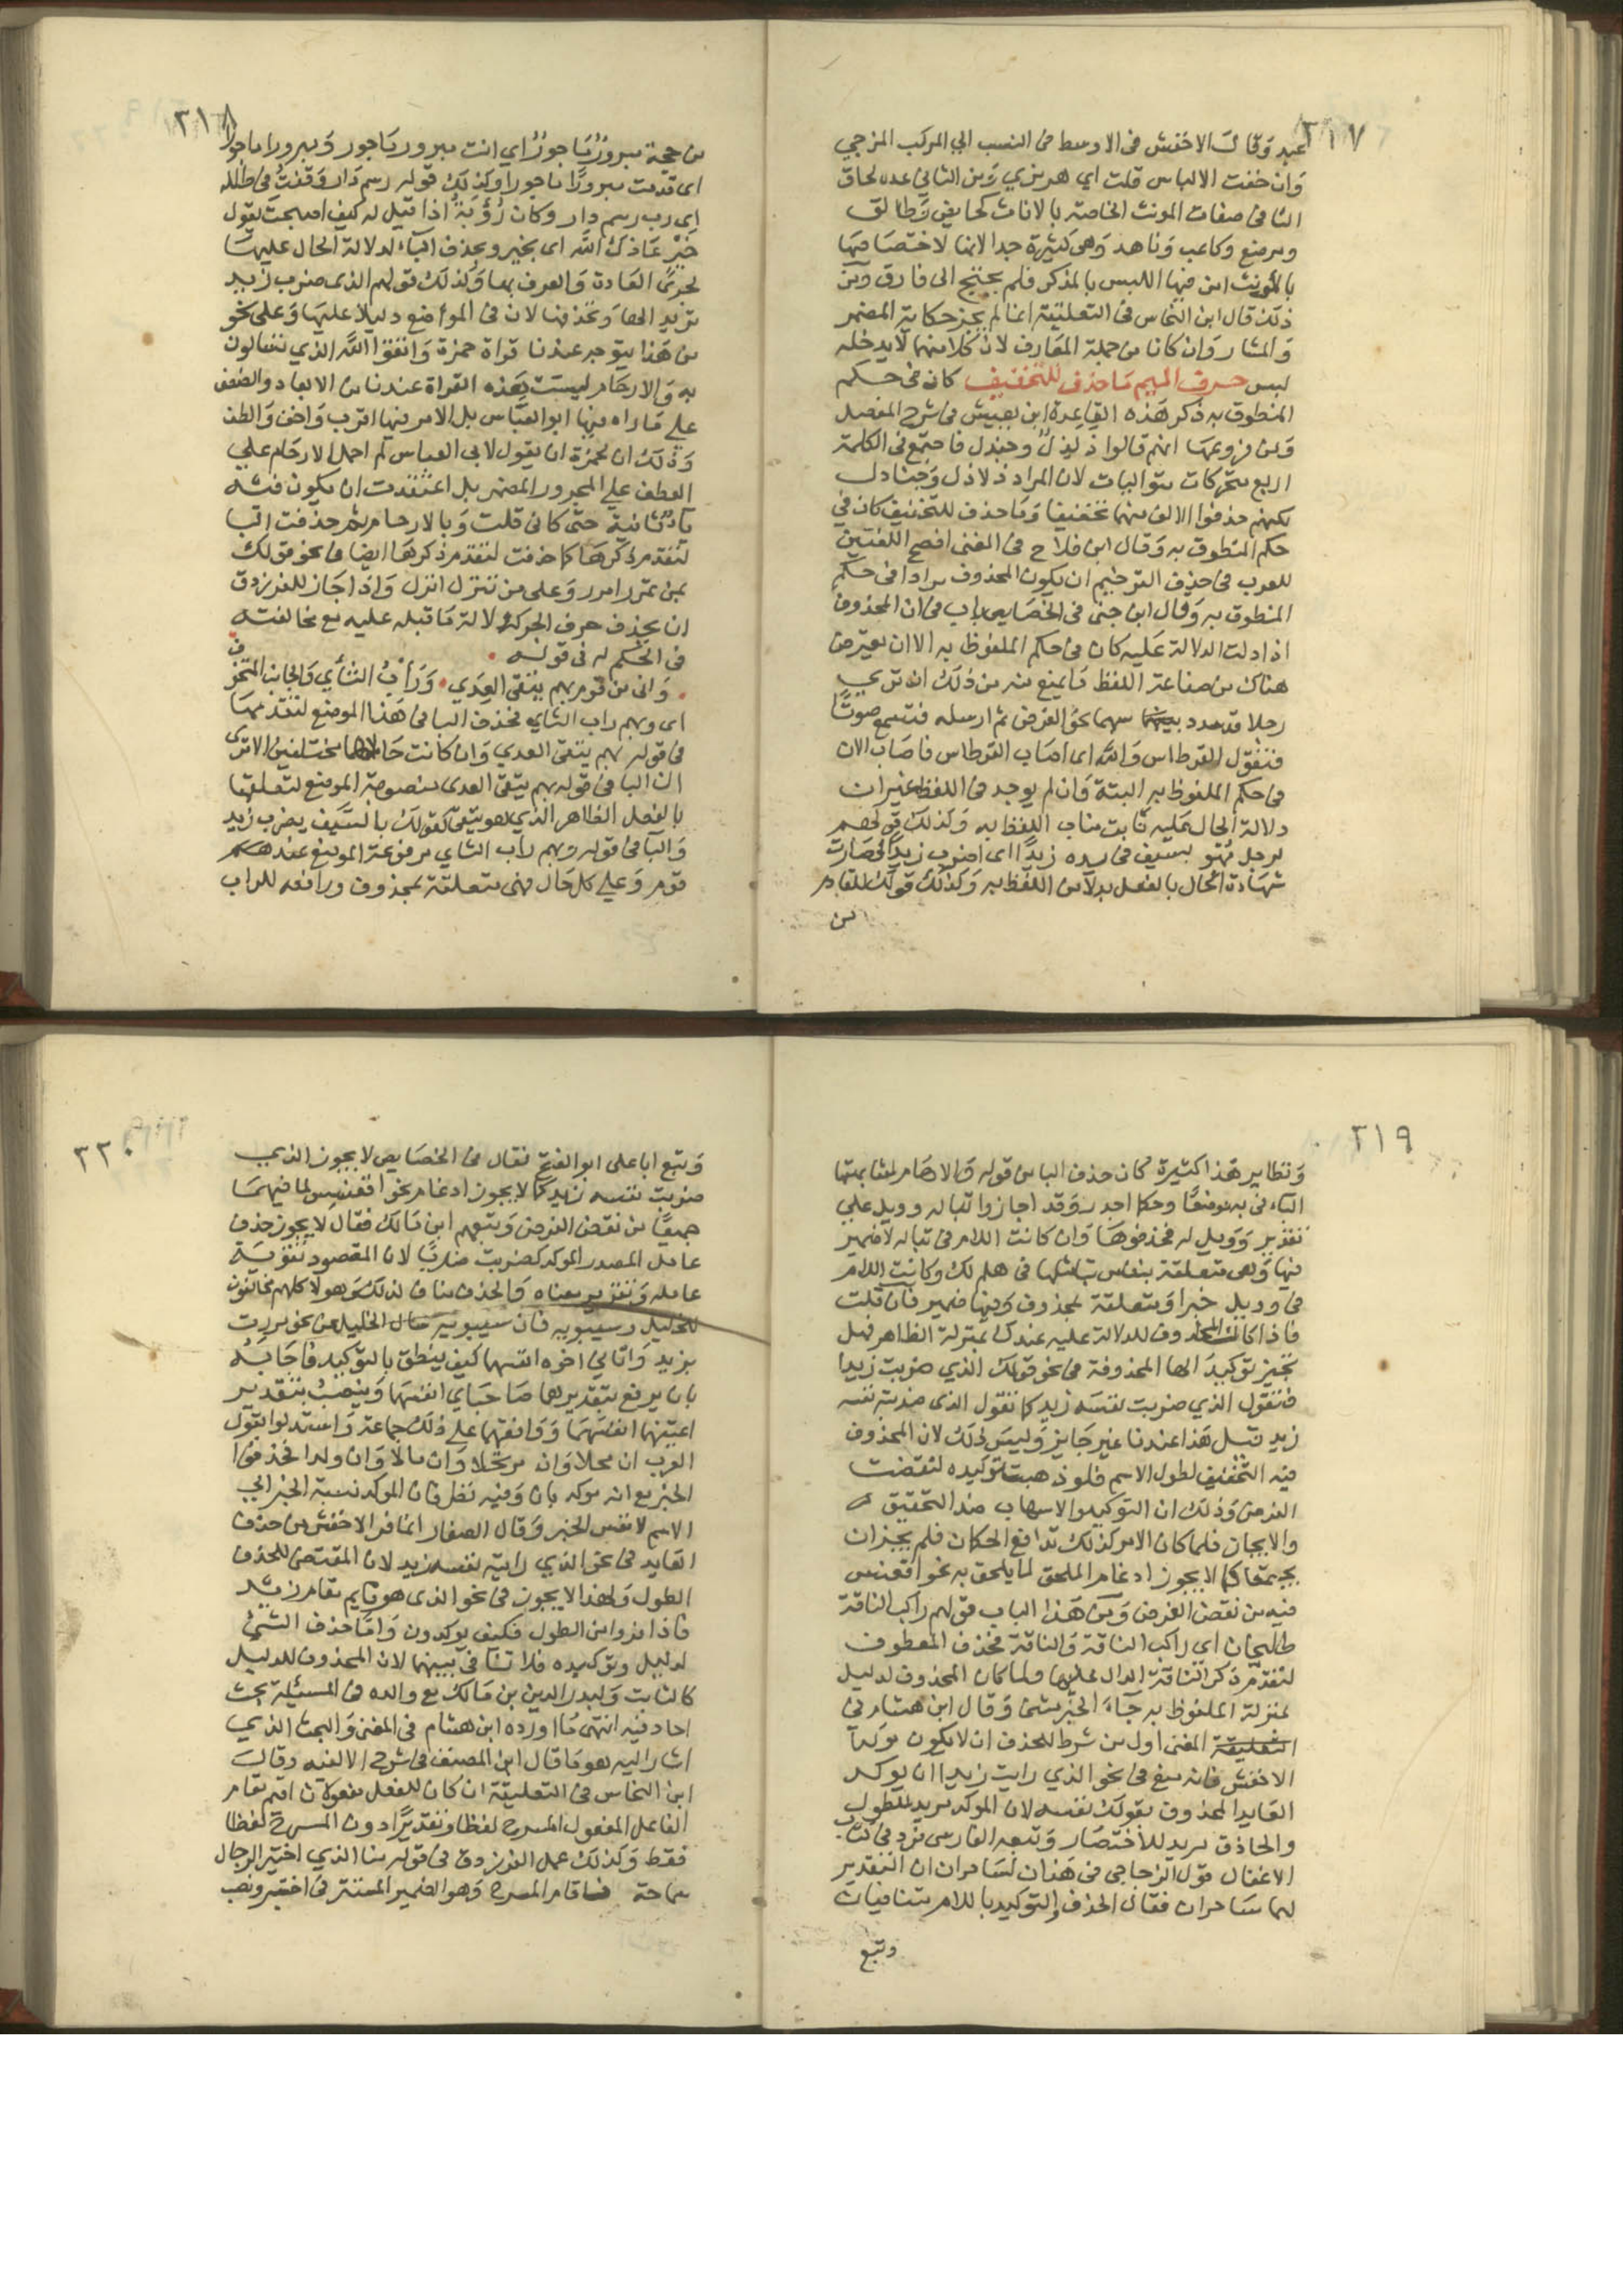 ٣١٧
عبد وقال الاخفش فى الاوسط فى النسب الي المركب المزجي
وان خفت الالباس قلت اي هرمزي ومن الثاني عدم لحاق
التا فى صفات المونث الخاصة بالاناث كحايض وطالق
ومرضع وكاعب وناهد وهى كثيرة جدا لانها لاختصاصها
بالمونث امن فيها اللبس بالمذكر فلم يحتج الى فارق ومن
ذلك قال ابن النحاس فى التعليقة انما لم يجز حكاية المضمر
والمشار وان كانا من جملة المعارف لان كلا منهما لا يدخله
لبس حرف الميم ما حذف للتخفيف كان فى حكم
المنطوق به ذكر هذه القاعدة ابن يعيش فى شرح المفصل
ومن فروعها انهم قالوا ذلذل وجندل فاجتمع فى الكلمة
اربع متحركات متواليات لان المراد ذلاذل وجنادل
لكنهم حذفوا الالف منهما تخفيفا وما حذف للتخفيف كان في
حكم المنطوق به وقال ابن فلاح فى المغنى افصح اللغتين
للعرب فى حذف الترخيم ان يكون المحذوف مرادا فى حكم
المنطوق به وقال ابن جنى فى الخصايص باب فى ان المحذوف
اذا دلت الدلالة عليه كان فى حكم الملفوظ به الا ان يعترض
هناك من صناعة اللفظ ما يمنع منه من ذلك ان ترى
رجلا قد سدد سهما نحو الغرض ثم ارسله فتسمع صوتا
فتقول القرطاس والله اى اصاب القرطاس فاصاب الان
فى حكم الملفوظ به البتة وان لم يوجد فى اللفظ غير ان
دلالة الحال عليه نابت مناب اللفظ به وكذلك قولهم
لرجل مهو بسيف فى يده زيدا اى اضرب زيدا فصارت
شهادة الحال بالفعل بدلا من اللفظ به وكذلك قولك للقادم
من
٣١٨
من حجة مبرور ماجور اي انت مبرور ماجور ومبرورا ماجورا
اى قدمت مبرورا ماجورا وكذلك قوله رسم دار وقفت فى طلله
اى رب رسم دار وكان رؤبة اذا قيل له كيف اصبحت يقول
خير عافاك الله اى بخير ويحذف الباء لدلالة الحال عليها
بجرى العادة والعرف بها وكذلك قولهم الذى ضرب زيد
تريد الهاء وتحذفها لان فى الموضع دليلا عليها وعلى نحو
من هذا يتوجه عندنا قراة حمزة واتقوا الله الذي تسالون
به والارحام ليست هذه القراة عندنا من الابعاد والضعف
على ماراه فيها ابو العباس بل الامر فيها اقرب واخف والطف
وذلك ان لحمزة ان يقول لابى العباس لم احمل الارحام علي
العطف علي المجرور المضمر بل اعتقدت ان يكون فيه
باء ثانية حتى كانى قلت وبالارحام ثم حذفت البا
لتقدم ذكرها كما حذفت لتقدم ذكرها ايضا فى نحو قولك
بمن تمرر امرر وعلى من تنزل انزل واذا جاز للفرزدق
ان يحذف حرف الجر لدلالة ما قبله عليه مع مخالفته
فى الحكم له فى قوله
وانى من قوم بهم يتقى العدي ورأب الثأي والجانب المتخوف
اى وبهم راب الثاي فحذف البا فى هذا الموضع لتقدمها
فى قوله بهم يتقى العدي وان كانت حالاهما مختلفين الا ترى
ان البا فى قوله بهم يتقى العدى منصوبة الموضع لتعلقها
بالفعل الظاهر الذي هو يتقى كقولك بالسيف يضرب زيد
والبا فى قوله وبهم راب الثاي مرفوعة الموضع عند
قوم وعلى كل حال فهى متعلقة بمحذوف ورافعه للراب
٣١٩
ونظاير هذا كثيرة فكان حذف البا من قوله والارحام لمشابهتها
الباء فى به موضعا وحكما اجدر وقد اجازوا تباله وويل علي
تقدير وويل له فحذفوها وان كانت اللام فى تباله لا ضمير
فيها وهى متعلقة بنفس تبا مثلها فى هلم لك وكانت اللام
فى وويل خبرا ومتعلقة بمحذوف وفيها ضمير فان قلت
فاذا كان المحذوف للدلالة عليه عندك بمنزلة الظاهر فهل
تجيز توكيد الها المحذوفة فى نحو قولك الذي ضربت زيد
فتقول الذي ضربت نفسه زيد كما تقول الذى ضربته نفسه
زيد قيل هذا عندنا غير جايز وليس ذلك لان المحذوف
فيه التخفيف لطول الاسم فلو ذهبت توكيده لنقضت
الغرض وذلك ان التوكيد والاسهاب ضد التخفيف
والايجاز فلما كان الامر كذلك تدافع الحكمان فلم يجز ان
يجتمعا كما لا يجوز ادغام الملحق لما يلحق به نحو اقعنسس
فيه من نقض الغرض ومن هذا الباب قولهم راكب الناقة
طليحان اى راكب الناقة والناقة فحذف المعطوف
لتقدم ذكر الناقة الدال عليها ولما كان المحذوف لدليل
بمنزلة الملفوظ به جاء الخبر مثنى وقال ابن هشام فى
المغنى اول من شرط للحذف ان لا يكون موكدا
الاخفش فانه منع فى نحو الذي رايت زيد ان يوكد
العايد المحذوف بقولك نفسه لان الموكد مريد للطول
والحاذف مريد للاختصار وتبعه الفارسى فرد فى كتاب
الاغفال قول الزجاجى فى هذان لساحران ان التقدير
لهما ساحران فقال الحذف والتوكيد باللام متنافيان
وتبع
٣٢٠
وتبع ابا على ابو الفتح فقال فى الخصايص لا يجوز الذي
ضربت نفسه زيد كما لا يجوز ادغام نحو اقعنسس لما فيهما
جميعا من نقض الغرض وتبعهم ابن مالك فقال لا يجوز حذف
عامل المصدر الموكد كضربت ضربا لان المقصود تقوية
عامله وتقرير معناه والحذف مناف لذلك وهولا كلهم مخالفون
للخليل وسيبويه فان سيبويه سال الخليل عن نحو مررت
بزيد واتاني اخوه انفسهما كيف ينطق بالتوكيد فاجابه
بان يرفع بتقدير هما صاحباي انفسهما وينصب بتقدير
اعنيهما انفسهما ووافقهما على ذلك جماعة واستدلوا بقول
العرب ان محلا وان مرتحلا وان مالا وان ولدا فحذفوا
الخبر مع انه موكد بان وفيه نظر فان الموكد نسبة الخبر الي
الاسم لا نفس الخبر وقال الصفار انما فر الاخفش من حذف
العايد فى نحو الذي رايته نفسه زيد لان المقتضى للحذف
الطول ولهذا لا يجوز فى نحو الذى هو قايم مقام زيد
فاذا فروا من الطول فكيف يوكدون واما حذف الشئ
لدليل وتوكيده فلا تنافى بينهما لان المحذوف لدليل
كالثابت ولبدر الدين بن مالك مع والده فى المسئلة بحث
اجاد فيه انتهى ما اورده ابن هشام فى المغنى والبحث الذي
اشار اليه هو ما قال ابن المصنف فى شرح الالفيه وقال
ابن النحاس فى التعليقة ان كان للفعل مفعولان اقيم مقام
الفاعل المفعول المسرح لفظا وتقديرا دون المسرح لفظا
فقط وكذلك عمل الفرزدق فى قوله منا الذي اختير الرجال
سماحة فاقام المسرح وهو الضمير المستتر فى اختير ونصب